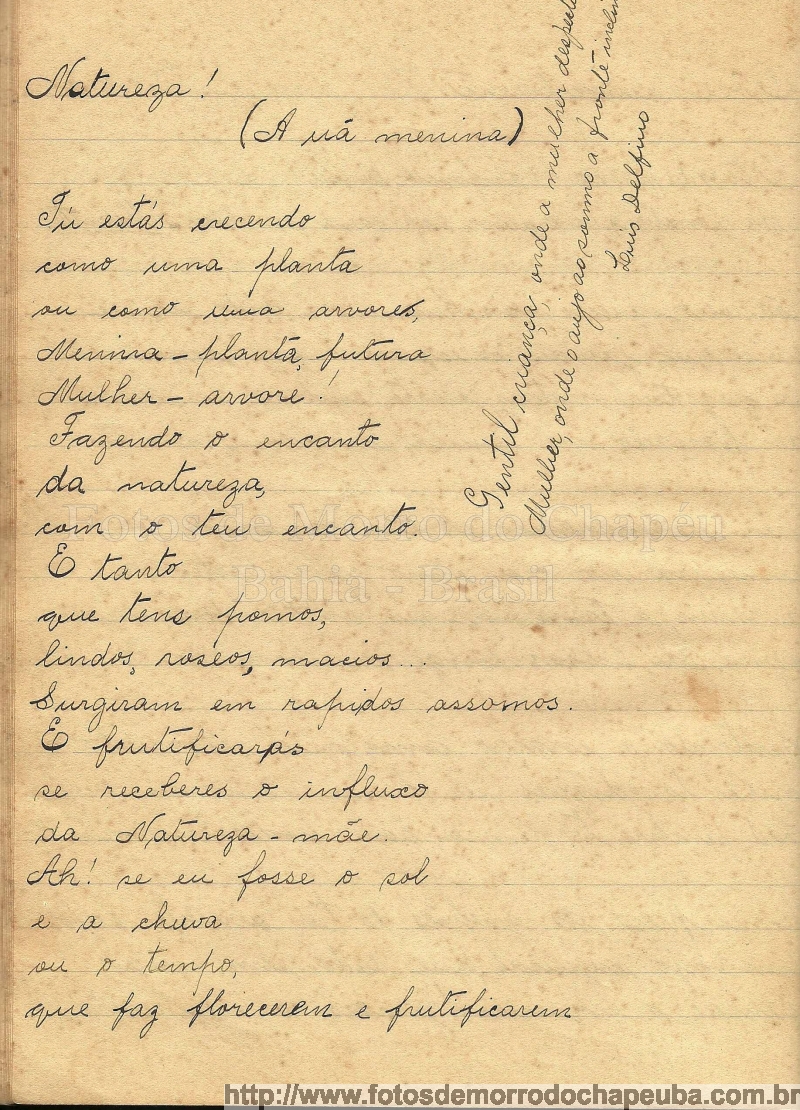 Natureza!
(A uá menina)
Tú estás crecendo
como uma planta
ou como uma arvores,
Menina - planta, futura
Mulher - arvore!
Fazendo o encanto
da natureza,
com o teu encanto.
E tanto
que tens pomos,
lindos, roseos, macios...
Surgiram em rapidos assomos.
E frutificarás
se receberes o influxo
da Natureza - mãe.
Ah! se eu fosse o sol
e a chuva
ou o tempo,
que faz floreceram e frutificarem
Gentil criança, onde a mulher despert
Mulher, onde o anjo ao somno a fronte inclin
Luis Delfino
Fotos de Morro do Chapéu
Bahia - Brasil
http://www.fotosdemorrodochapeuba.com.br